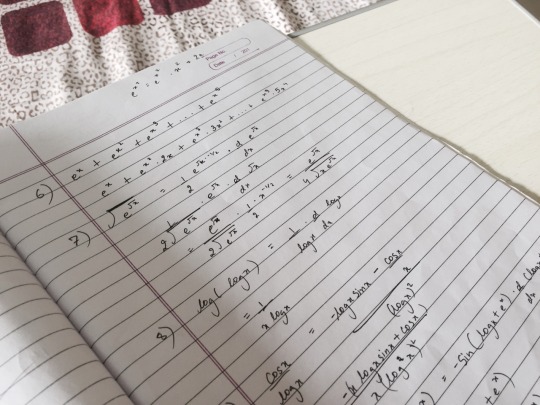 Page No.
Date
6) e^x + e^{x^2} + e^{x^3} + ... + e^{x^5}
e^x + e^{x^2} · 2x + e^{x^3} · 3x^2 + ... + e^{x^5} · 5x^4
7) √(e^{√x}) = 1/2 e^{√x · -1/2} · d/dx e^{√x}
1/(2√(e^{√x})) · e^{√x} · d/dx √x
= e^{√x}/(2√(e^{√x})) · 1/2 · x^{-1/2} = e^{√x}/(4√(x e^{√x}))
8) log(log x) = 1/log x · d/dx log x
= 1/(x log x)
cos x / log x = (-log x sin x - cos x/x) / (log x)^2
-(x log x sin x + cos x) / x(log x)^2
= -sin(log x + e^x) · d/dx (log x